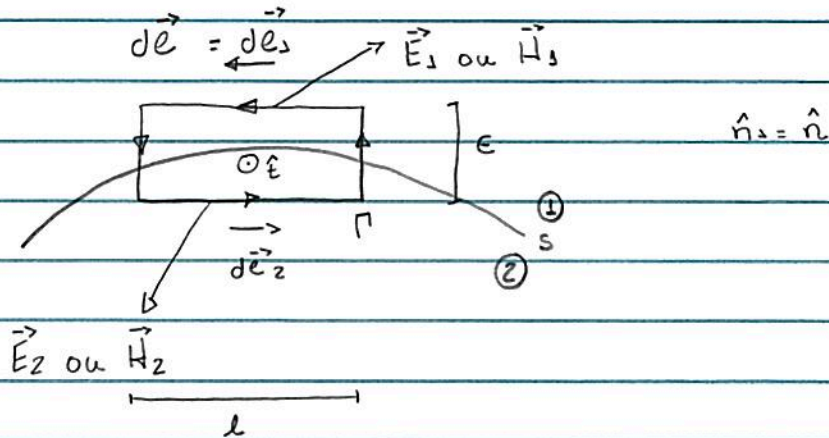 d𝓵⃗ = d𝓵⃗₁
E⃗₁ ou H⃗₁
n̂₁ = n̂
ϵ
⊙ t̂
①
Γ
S
d𝓵⃗₂
②
E⃗₂ ou H⃗₂
l